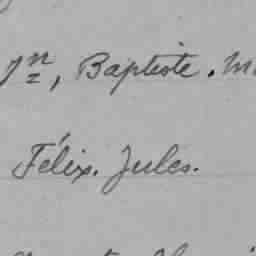 Jn, Baptiste. M
Félix. Jules.